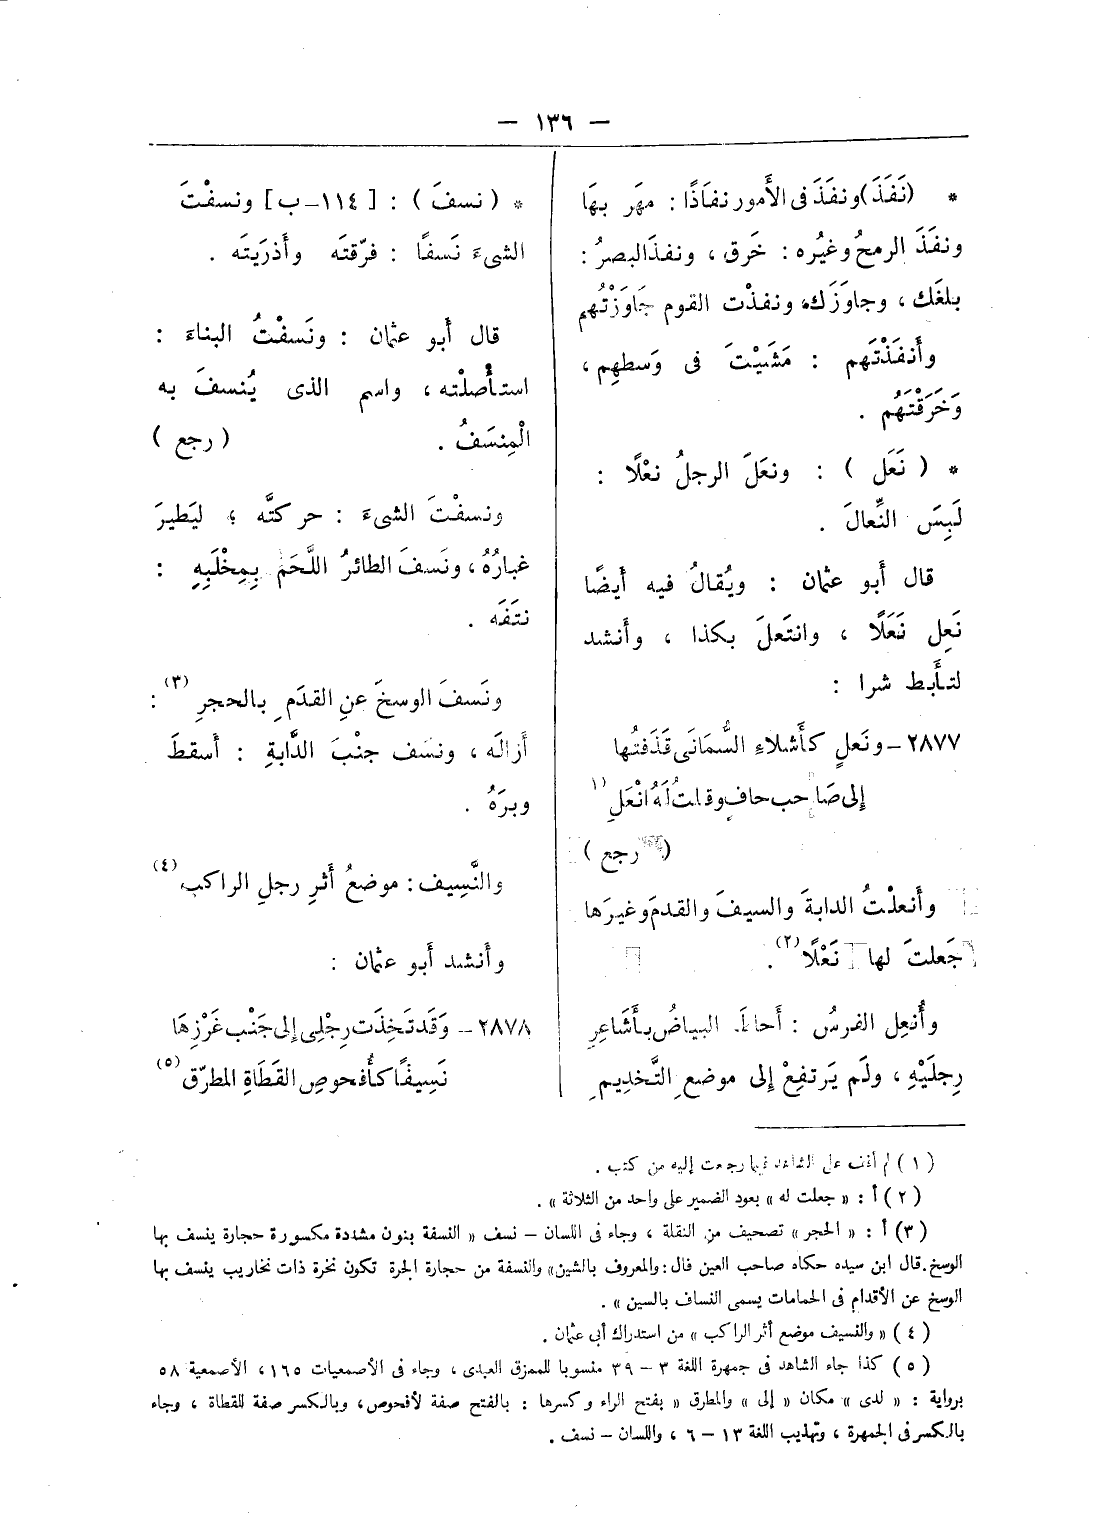 — ١٣٦ —
* (نَفَذَ) ونفَذَ فى الأَمور نفاذًا : مهَر بهَا
ونفَذَ الرمحُ وغيُره : خَرق ، ونفذَ البصرُ :
بلغَك ، وجاوَزَك، ونفذْت القوم جَاوَزْتُهم
وأَنفَذْتَهم : مَشَيْتَ فى وَسطهِم ،
وَخَرَقْتَهُم .
* ( نَعَل ) : ونعَلَ الرجلُ نعْلًا :
لَبِسَ النِّعالَ .
قال أَبو عثمان : ويُقالُ فيه أَيضًا
نَعِل نَعَلًا ، وانتَعلَ بكذا ، وأَنشد
لتأَبط شرا :
٢٨٧٧ – ونَعلٍ كأَشلاءِ السُّمَانَى قَذَفتُها
إلى صَاحب حافٍ وقلتُ لَهُ انْعَلِ (١
( رجع )
وأَنعلْتُ الدابةَ والسيفَ والقدمَ وغيرَها
جَعلتَ لها نَعْلًا (٢) .
وأُنعِل الفرسُ : أَحاطَ البياضُ بأَشَاعِرِ
رِجلَيْهِ ، ولَم يَرتفِعْ إلى موضعِ التَّخدِيمِ
* ( نسفَ ) : [ ١١٤ – ب ] ونسفْتَ
الشىءَ نَسفًا : فرّقتَه وأَذرَيتَه .
قال أَبو عثمان : ونَسفْتُ البناءَ :
استأْصلْته ، واسم الذى يُنسفَ به
الْمِنسَفُ . ( رجع )
ونسفْتَ الشىءَ : حركتَّه ؛ ليَطيرَ
غبارُهُ ، ونَسفَ الطائرُ اللَّحَمَ بِمِخْلَبِهِ :
نتَفَه .
ونَسفَ الوسخَ عنِ القدَمِ بالحجرِ (٣) :
أَزالَه ، ونسَف جنْبَ الدَّابةِ : أَسقطَ
وبرَهُ .
والنَّسِيف : موضعُ أَثرِ رجلِ الراكبِ (٤)
وأَنشد أَبو عثمان :
٢٨٧٨ – وَقَد تَخِذَت رِجْلِى إلى جَنْب غَرْزِهَا
نَسِيفًا كأُفحوصِ القَطَاةِ المطرّق (٥)
(١) لم أقف على الشاهد فيما رجعت إليه من كتب .
(٢) أ : « جعلت له » بعود الضمير على واحد من الثلاثة » .
(٣) أ : « الحجر » تصحيف من النقلة ، وجاء فى اللسان – نسف « النسفة بنون مشددة مكسورة حجارة ينسف بها
الوسخ . قال ابن سيده حكاه صاحب العين قال : والمعروف بالشين» والنسفة من حجارة الحرة تكون نخرة ذات نخاريب ينسف بها
الوسخ عن الأقدام فى الحمامات يسمى النساف بالسين » .
(٤) « والنسيف موضع أثر الراكب » من استدراك أبى عثمان .
(٥) كذا جاء الشاهد فى جمهرة اللغة ٣ – ٣٩ منسوبا للممزق العبدى ، وجاء فى الأصمعيات ١٦٥ ، الأصمعية ٥٨
برواية : « لدى » مكان « إلى » والمطرق « بفتح الراء وكسرها : بالفتح صفة لأفحوص ، وبالكسر صفة للقطاة ، وجاء
بالكسر فى الجمهرة ، وتهذيب اللغة ١٣ – ٦ ، واللسان – نسف .